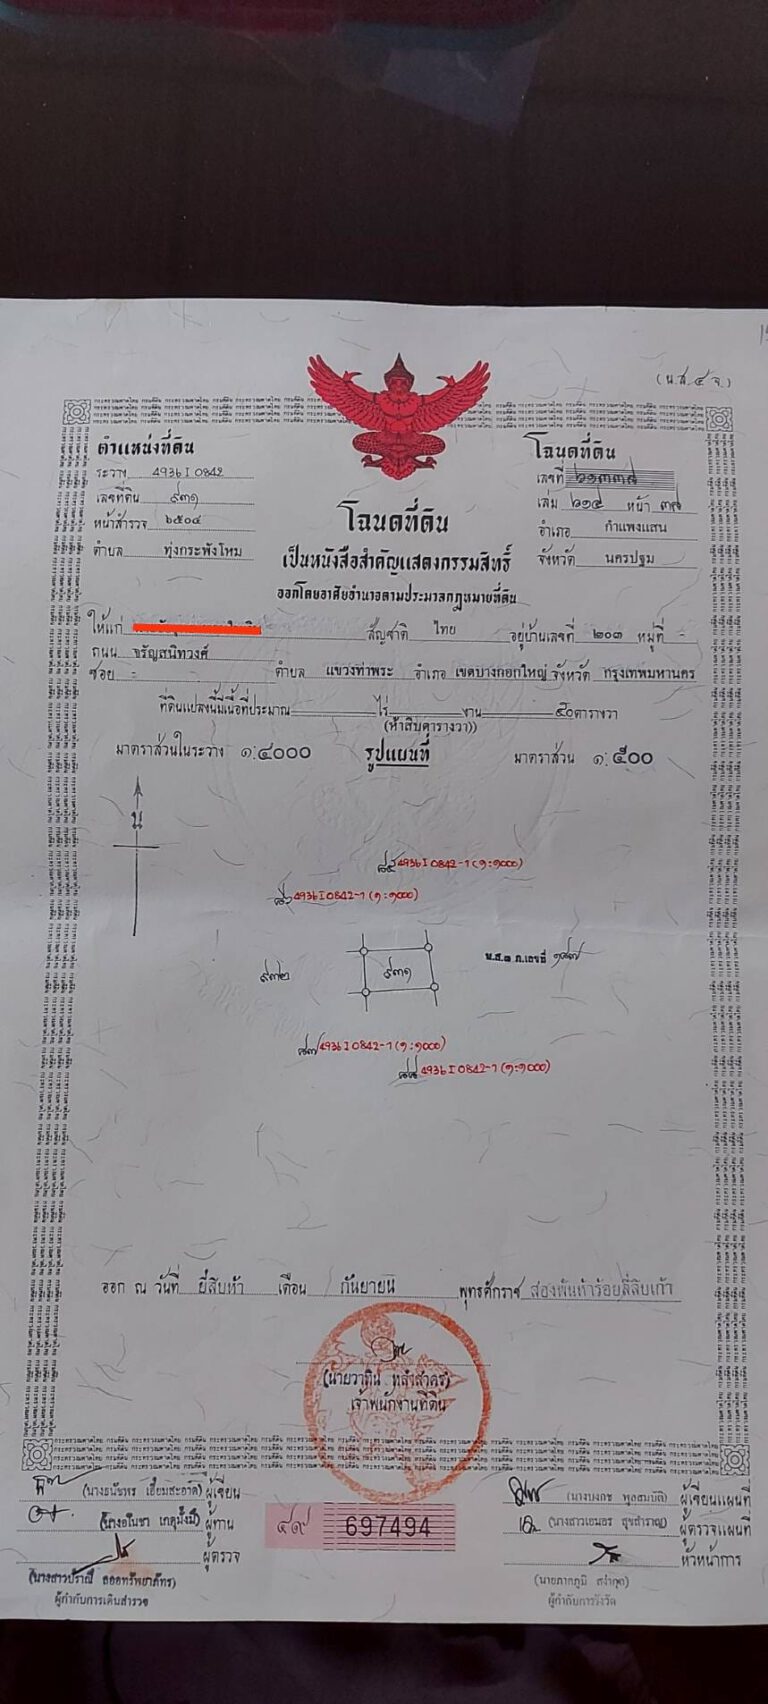 (น.ส.๔ จ.)
ตำแหน่งที่ดิน
ระวาง 4936 I 0842
เลขที่ดิน ๙๓๑
หน้าสำรวจ ๖๕๐๔
ตำบล ทุ่งกระพังโหม
โฉนดที่ดิน
เลขที่ ๖๑๓๓๘
เล่ม ๖๑๔ หน้า ๓๘
อำเภอ กำแพงแสน
จังหวัด นครปฐม
โฉนดที่ดิน
เป็นหนังสือสำคัญแสดงกรรมสิทธิ์
ออกโดยอาศัยอำนาจตามประมวลกฎหมายที่ดิน
ให้แก่ สัญชาติ ไทย อยู่บ้านเลขที่ ๒๐๓ หมู่ที่ -
ถนน จรัญสนิทวงศ์
ซอย - ตำบล แขวงท่าพระ อำเภอ เขตบางกอกใหญ่ จังหวัด กรุงเทพมหานคร
ที่ดินแปลงนี้มีเนื้อที่ประมาณ ไร่ งาน ๕๐ ตารางวา
(ห้าสิบตารางวา)
มาตราส่วนในระวาง ๑:๔๐๐๐ รูปแผนที่ มาตราส่วน ๑:๕๐๐
น
๘๕ 4936 I 0842-1 (๑:๑๐๐๐)
4936 I 0842-1 (๑:๑๐๐๐)
๙๓๒ ๙๓๑ น.ส.๓ ก.เลขที่ ๑๘๗
๘๗ 4936 I 0842-1 (๑:๑๐๐๐)
๘๘ 4936 I 0842-1 (๑:๑๐๐๐)
ออก ณ วันที่ ยี่สิบห้า เดือน กันยายน พุทธศักราช สองพันห้าร้อยสี่สิบเก้า
(นายวาทิน หลำสาคร)
เจ้าพนักงานที่ดิน
(นางธนัชพร เอี่ยมสะอาด) ผู้เขียน
ผู้ทาน
ผู้ตรวจ
(นางสาวปราณี ลออทรัพยาภัทร)
ผู้กำกับการเดินสำรวจ
๔๙ 697494
(นางบงกช พูลสมบัติ) ผู้เขียนแผนที่
(นางสาวเอมอร สุขสำราญ) ผู้ตรวจแผนที่
หัวหน้าการ
(นายภาคภูมิ สง่ากุล)
ผู้กำกับการรังวัด